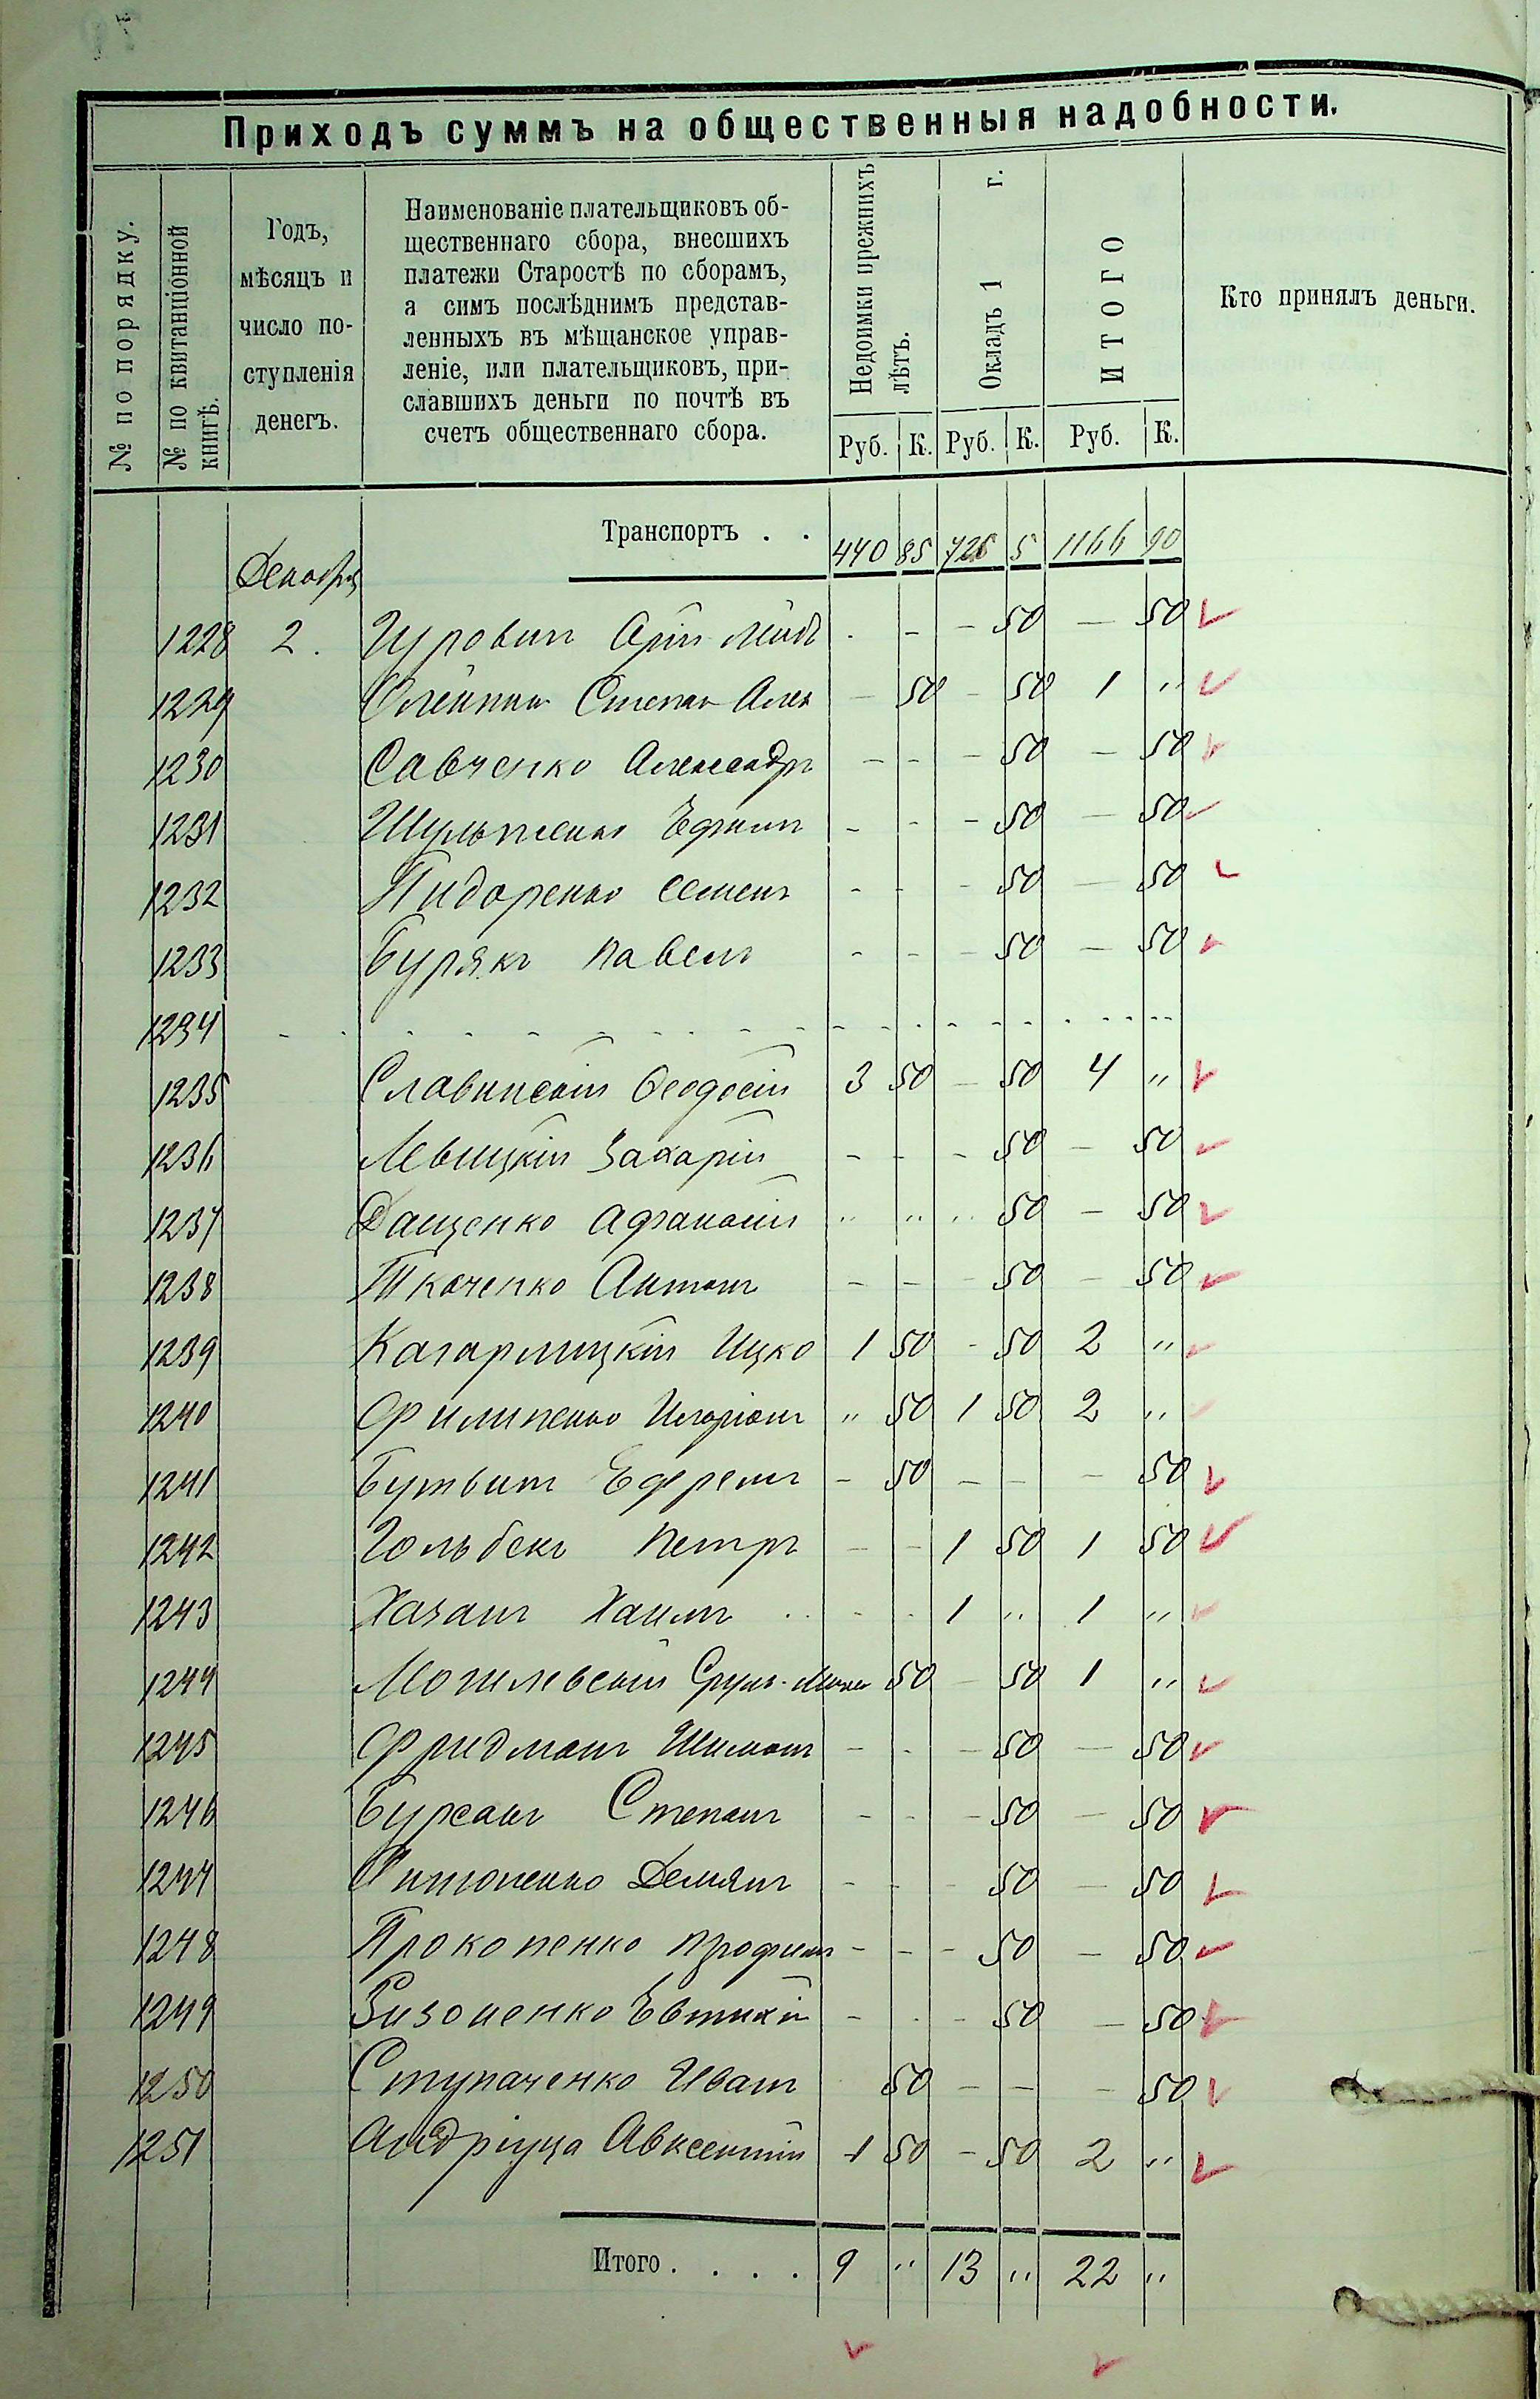 Приходъ суммъ на общественныя надобности.
№ по порядку.
№ по квитанціонной книгѣ.
Годъ, мѣсяцъ и число поступленія денегъ.
Наименованіе плательщиковъ об-
щественнаго сбора, внесшихъ
платежи Старостѣ по сборамъ,
а симъ послѣднимъ представ-
ленныхъ въ мѣщанское управ-
леніе, или плательщиковъ, при-
славшихъ деньги по почтѣ въ
счетъ общественнаго сбора.
Недоимки прежнихъ лѣтъ.
Окладъ 1 г.
ИТОГО
Кто принялъ деньги.
Руб. К. Руб. К. Руб. К.
Транспортъ . . 440 85 726 5 1166 90
Декабрь
1228 2. - - - 50 - 50
1229 Степан Алек - 50 - 50 1 "
1230 Савченко Александръ - - - 50 - 50
1231 Шульженко Ефимъ - - - 50 - 50
1232 Пидоренко Семенъ - - - 50 - 50
1233 Бурякъ Павелъ - - - 50 - 50
1234 - - - - - - - - - - -
1235 Славинскій Феодосій 3 50 - 50 4 "
1236 Левицкій Захарій - - - 50 - 50
1237 Дащенко Афанасій " " " 50 - 50
1238 Ткаченко Антонъ - - - 50 - 50
1239 Кагарлицкій Ицко 1 50 - 50 2 "
1240 Филипенко Иларіонъ " 50 1 50 2 "
1241 Ефремъ - 50 - - - 50
1242 Гольбекъ Петръ - - 1 50 1 50
1243 Хазанъ Хаимъ - - 1 " 1 "
1244 Могилевскій Сруль- 50 - 50 1 "
1245 Фридманъ Шиманъ - - - 50 - 50
1246 Бурсанъ Степанъ - - - 50 - 50
1247 Демянъ - - - 50 - 50
1248 Прокопенко - - - 50 - 50
1249 Евтихій - - - 50 - 50
1250 Ступаченко Иванъ 50 - - - 50
1251 Андріуца Авксентій 1 50 - 50 2 "
Итого . . . . 9 " 13 " 22 "